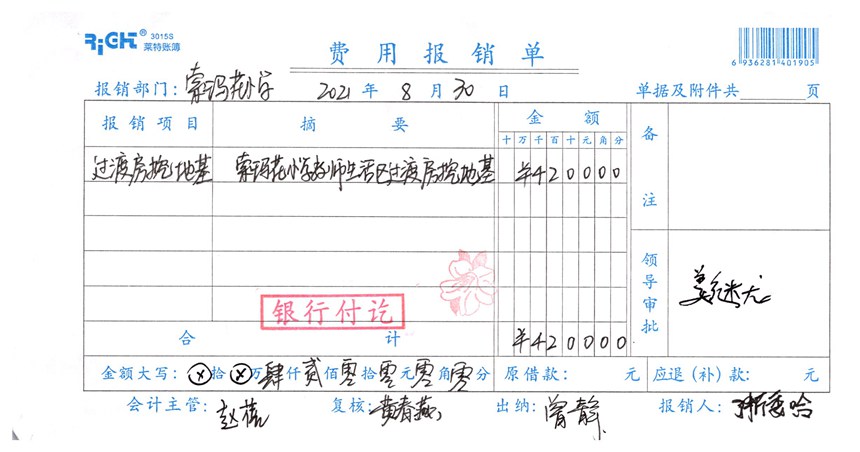 RiCHT 3015S
莱特账簿
费用报销单
6 936281 401905
报销部门: 索玛花小学 2021 年 8 月 30 日 单据及附件共 页
报销项目 摘要 金额 备注
十 万 千 百 十 元 角 分
过渡房挖地基 索玛花小学教师生活区过渡房挖地基 ¥420000
领导审批
银行付讫
合计 ¥420000
金额大写: ⊗拾⊗万肆仟贰佰零拾零元零角零分 原借款: 元 应退(补)款: 元
会计主管: 赵蓓 复核: 黄春燕 出纳: 曾静 报销人: